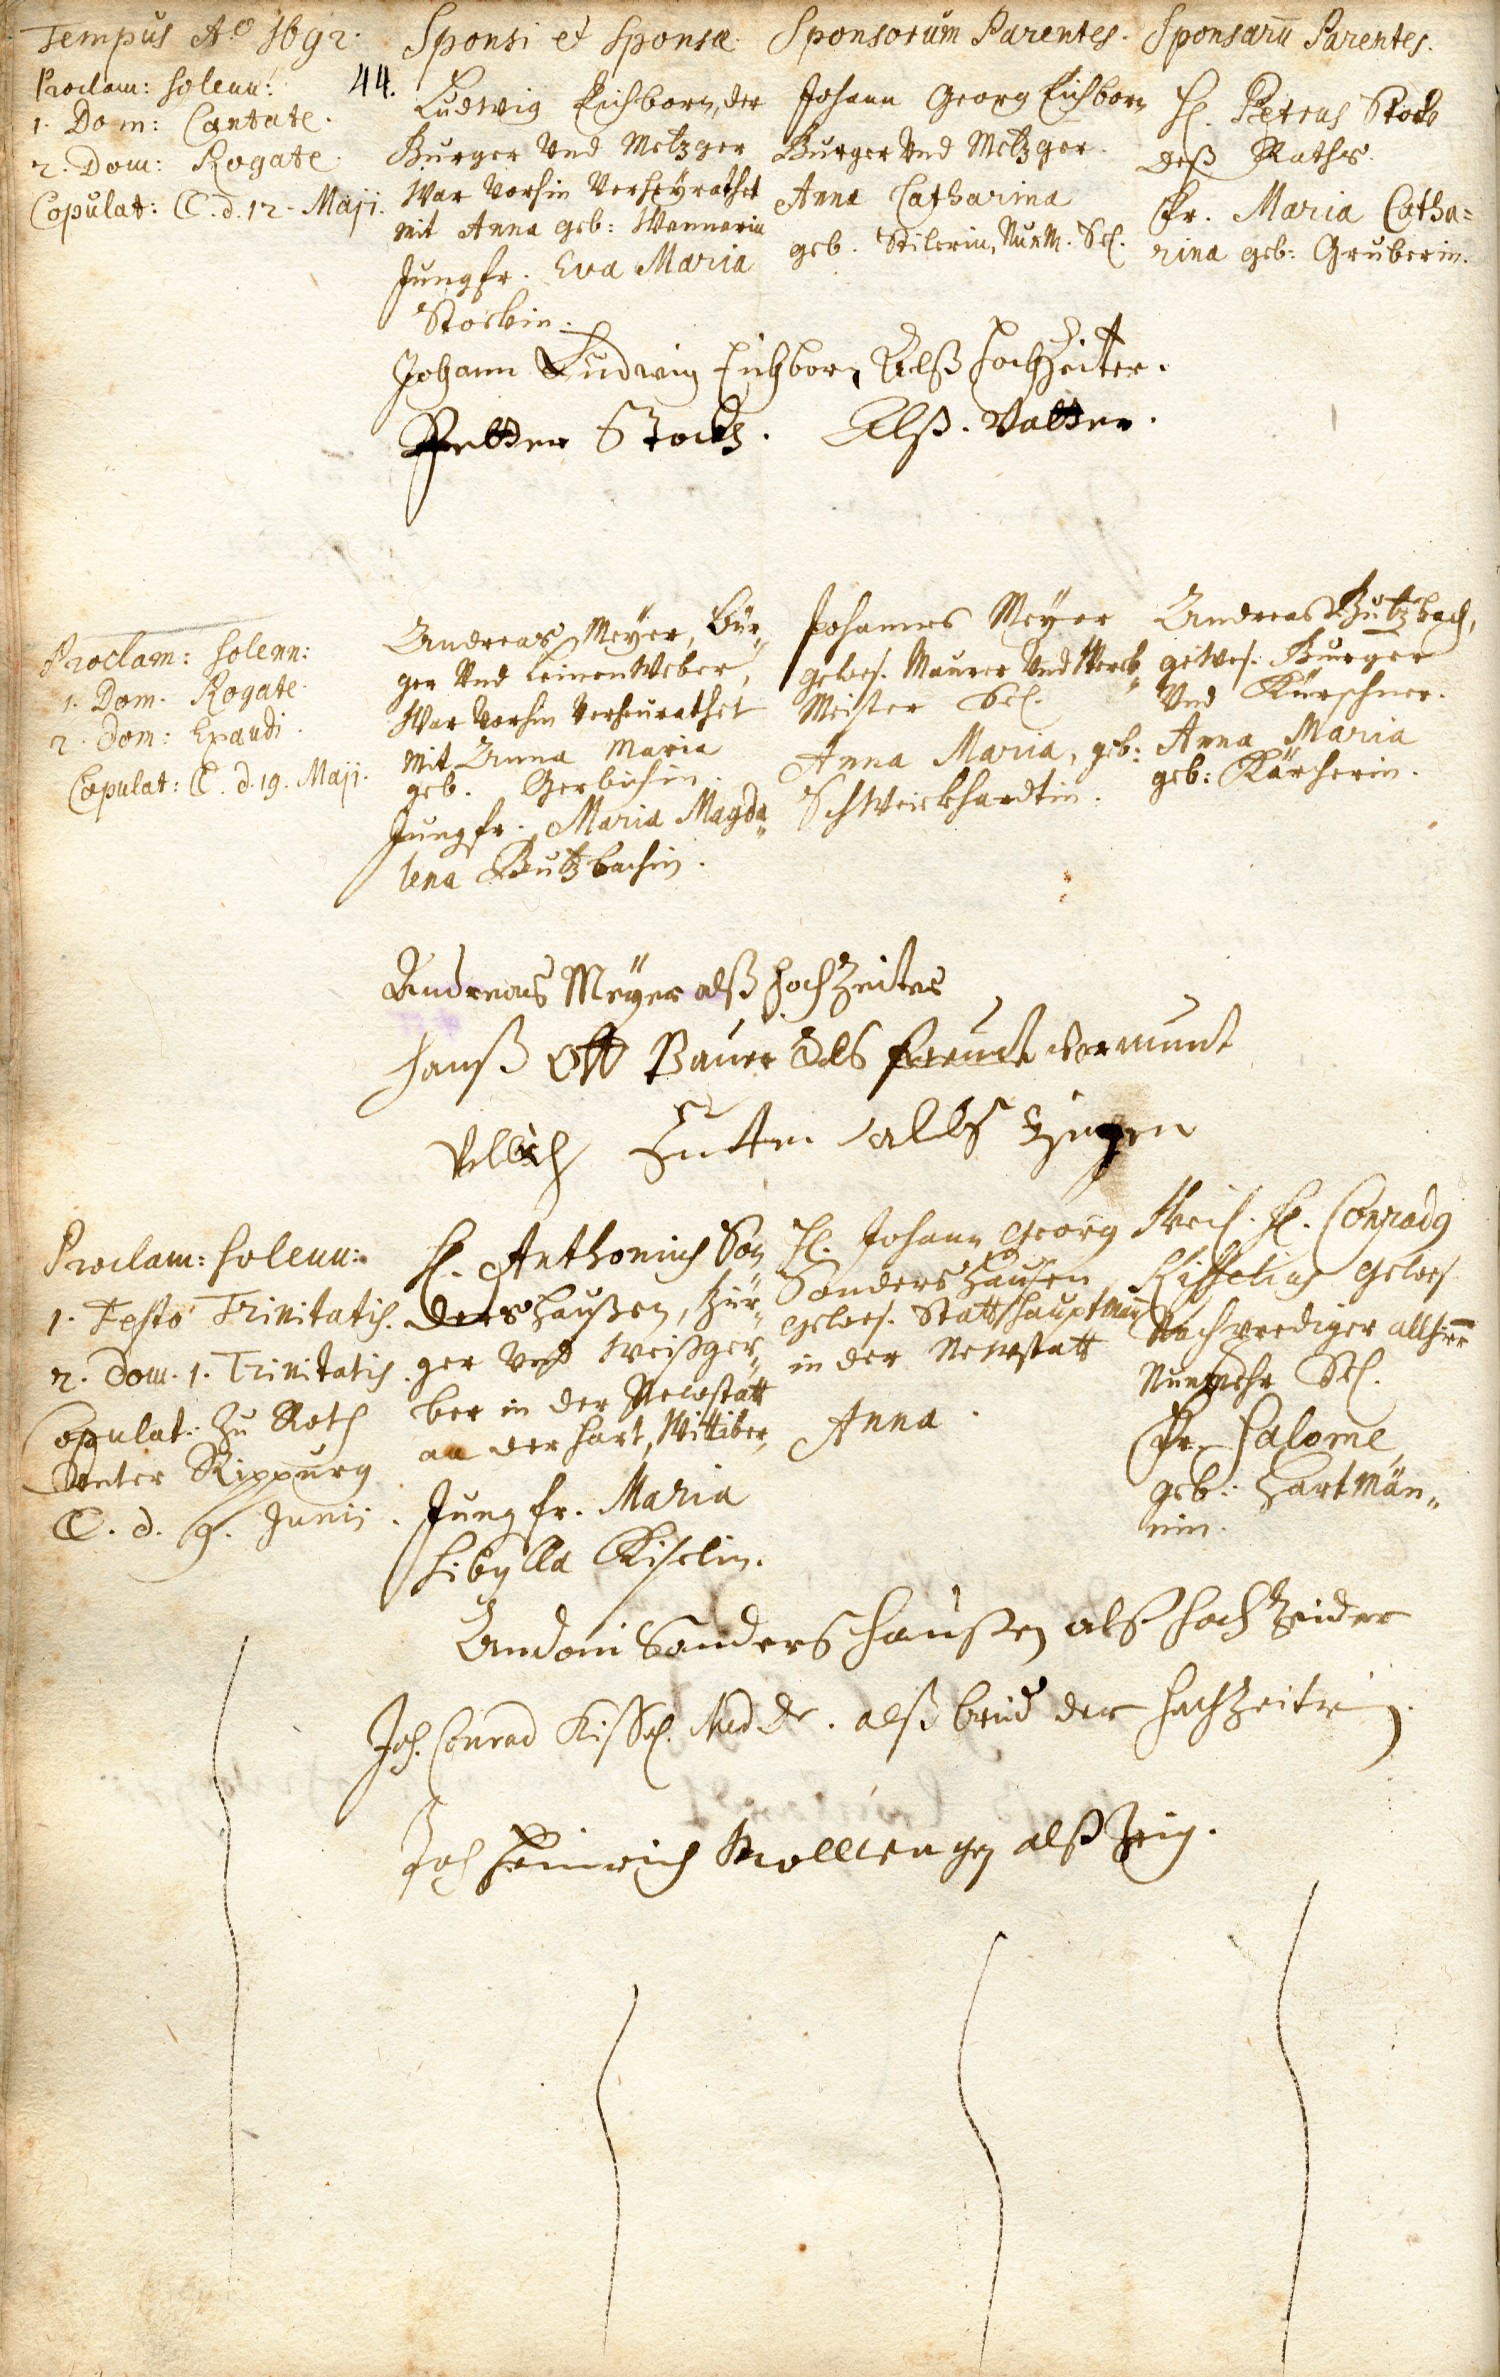 Tempus Aº 1692. Sponsi et Sponsæ. Sponsorum Parentes. Sponsarū Parentes.
Proclam: solenn:
1. Dom: Cantate.
2. Dom: Rogate.
Copulat: ☾. d. 12. Maji.
44.
Ludwig Eichborn, der
Burger Und Metzger
War Vorhin Verheÿrathet
mit Anna geb: Wannerin
Jungfr. Eva Maria
Stockin.
Johann Georg Eichborn
Burger Und Metzger.
Anna Catharina
geb. Stilerin, Nun M. Sel.
H. Petrus Stock
deß Raths.
Fr. Maria Catha=
rina geb: Gruberin.
Johann Ludwig Eichborn Alß Hochzeiter.
Petter Stock. Alß. Vatter.
Proclam: solenn:
1. Dom. Rogate.
2. Dom: Exaudi.
Copulat: ☾. d. 19. Maji.
Andreas Meÿer, Bür„
ger Und Leinen Weber,
War Vorhin Verheurathet
mit Anna Maria
geb. Gerbichin.
Jungfr. Maria Magda„
lena Butzbachin.
Johannes Meÿer
gewes. Maurer Und Werck„
Meister Sel.
Anna Maria, geb:
Schweickhardtin.
Andreas Butzbach,
gewes. Burger
Und Kürschner.
Anna Maria
geb: Kärcherin.
Andreas Meÿer alß Hochzeiter
Hanß Ott Bauer Als freundt vormundt
Ulrich Sutter alls Zeugen
Proclam: solenn:
1. Festo Trinitatis.
2. Dom. 1. Trinitatis.
Copulat: Zu Roth
Unter Rippurg
☾. d. 9. Junij.
H. Anthonius Son
dershaußen, Bür„
ger Und Weißger„
ber in der Newstatt
an der Hart, Wittiber,
Jungfr. Maria
Sibylla Kiselin.
H. Johann Georg
Sondershausen
gewes. Statthauptman
in der Newstatt
Anna.
Weil. H. Conradq
Kisselius gewes.
Nachprediger allhier
Nunmehr Sel.
Fr. Salome,
geb: Hartmän„
nin.
Andoni Sanderschaußen alß hochzeider
Joh. Conrad Kissel Med Dr. alß brud der hochzeiterin.
Joh Heinrich alß Zeig.